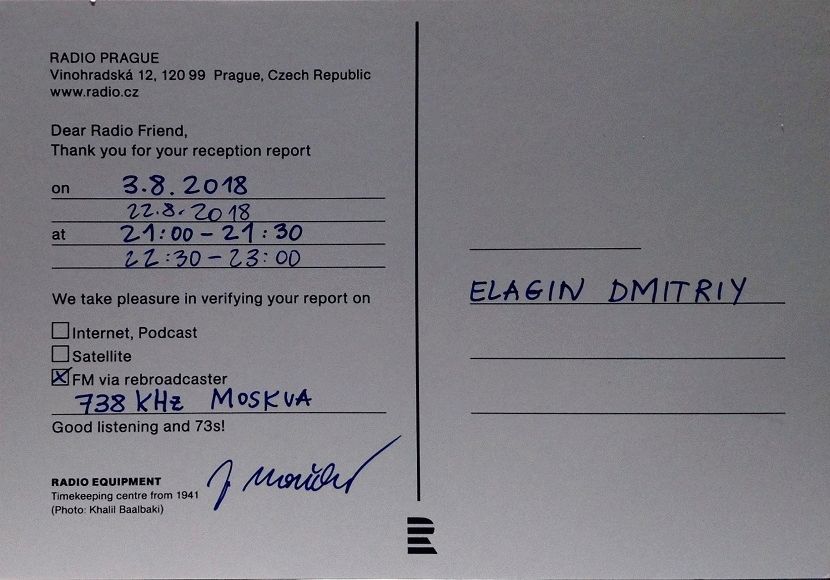 RADIO PRAGUE
Vinohradská 12, 120 99 Prague, Czech Republic
www.radio.cz
Dear Radio Friend,
Thank you for your reception report
on 3.8.2018
22.8.2018
at 21:00 - 21:30
22:30 - 23:00
We take pleasure in verifying your report on
Internet, Podcast
Satellite
FM via rebroadcaster
738 KHz MOSKVA
Good listening and 73s!
RADIO EQUIPMENT
Timekeeping centre from 1941
(Photo: Khalil Baalbaki)
ELAGIN DMITRIY